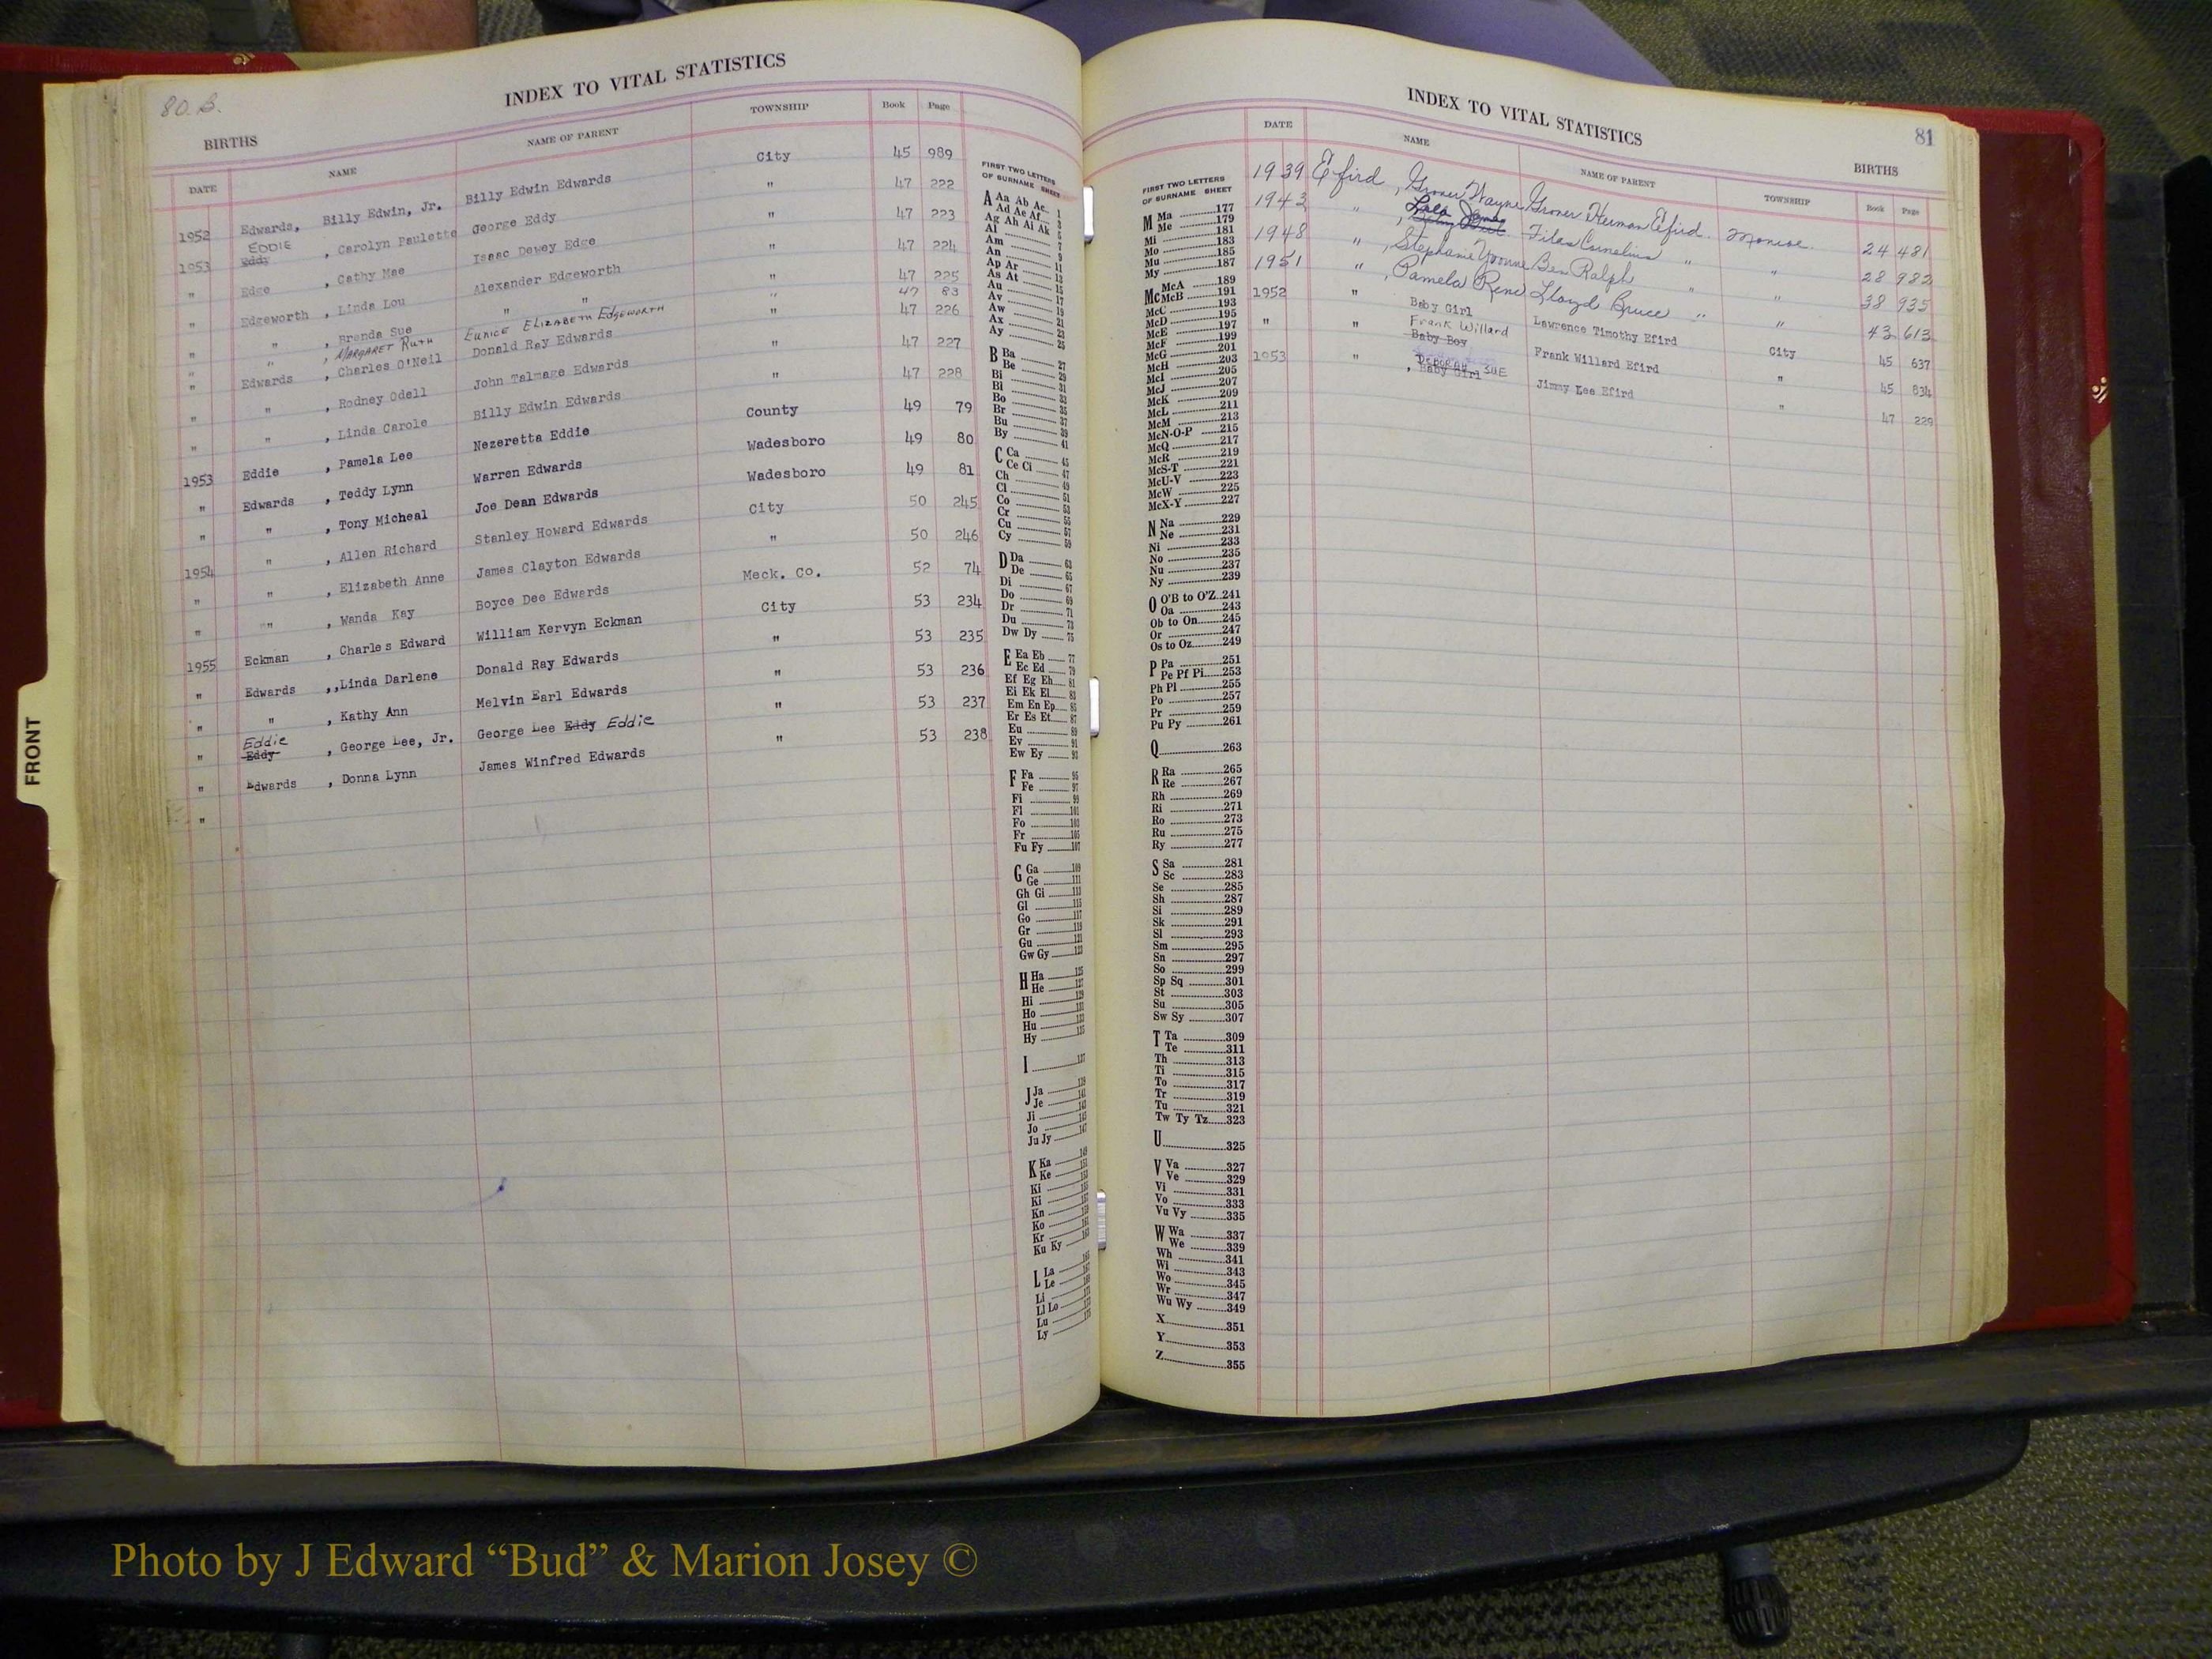 80.B.
INDEX TO VITAL STATISTICS
BIRTHS
DATE NAME NAME OF PARENT TOWNSHIP Book Page
1952 Edwards, Billy Edwin, Jr. Billy Edwin Edwards City 45 989
1953 EDDIE Eddy , Carolyn Paulette George Eddy " 47 222
" Edge , Cathy Mae Isaac Dewey Edge " 47 223
" Edgeworth , Linda Lou Alexander Edgeworth " 47 224
" " , Brenda Sue " " 47 225
" " , MARGARET RUTH EUNICE ELIZABETH EDGEWORTH " 47 83
" Edwards , Charles O'Neil Donald Ray Edwards " 47 226
" " , Rodney Odell John Talmage Edwards " 47 227
" " , Linda Carole Billy Edwin Edwards " 47 228
1953 Eddie , Pamela Lee Nezeretta Eddie County 49 79
" Edwards , Teddy Lynn Warren Edwards Wadesboro 49 80
" " , Tony Micheal Joe Dean Edwards Wadesboro 49 81
1954 " , Allen Richard Stanley Howard Edwards City 50 245
" " , Elizabeth Anne James Clayton Edwards " 50 246
" "" , Wanda Kay Boyce Dee Edwards Meck. Co. 52 74
1955 Eckman , Charles Edward William Kervyn Eckman City 53 234
" Edwards ,,Linda Darlene Donald Ray Edwards " 53 235
" " , Kathy Ann Melvin Earl Edwards " 53 236
" Eddie Eddy , George Lee, Jr. George Lee Eddy Eddie " 53 237
" Edwards , Donna Lynn James Winfred Edwards " 53 238
"
FIRST TWO LETTERS
OF SURNAME SHEET
A Aa Ab Ac 1
Ad Ae Af 3
Ag Ah Ai Ak 5
Al 7
Am 9
An 11
Ap Ar 13
As At 15
Au 17
Av 19
Aw 21
Ax 23
Ay 25
B Ba 27
Be 29
Bi 31
Bl 33
Bo 35
Br 37
Bu 39
By 41
C Ca 45
Ce Ci 47
Ch 49
Cl 51
Co 53
Cr 55
Cu 57
Cy 59
D Da 63
De 65
Di 67
Do 69
Dr 71
Du 73
Dw Dy 75
E Ea Eb 77
Ec Ed 79
Ef Eg Eh 81
Ei Ek El 83
Em En Ep 85
Er Es Et 87
Eu 89
Ev 91
Ew Ey 93
F Fa 95
Fe 97
Fi 99
Fl 101
Fo 103
Fr 105
Fu Fy 107
G Ga 109
Ge 111
Gh Gi 113
Gl 115
Go 117
Gr 119
Gu 121
Gw Gy 123
H Ha 125
He 127
Hi 129
Ho 131
Hu 133
Hy 135
I 137
J Ja 139
Je 141
Ji 143
Jo 145
Ju Jy 147
K Ka 149
Ke 151
Ki
Kl
Kn
Ko
Kr
Ku Ky
L La
Le
Li
Ll Lo
Lu
Ly
81
INDEX TO VITAL STATISTICS
BIRTHS
DATE NAME NAME OF PARENT TOWNSHIP Book Page
1939 Efird , Grover Wayne Grover Herman Efird Monroe. 24 481
1943 " , Filas Cornelius " " 28 982
1948 " , Stephanie Yvonne Ben Ralph " " 38 935
1951 " , Pamela Rene Lloyd Bruce " " 43 613
1952 " Baby Girl Lawrence Timothy Efird City 45 637
" " Frank Willard Baby Boy Frank Willard Efird " 45 834
1953 " , Deborah SUE Baby Girl Jimmy Lee Efird " 47 229
FIRST TWO LETTERS
OF SURNAME SHEET
M Ma 177
Me 179
Mi 181
Mo 183
Mu 185
My 187
Mc McA 189
McB 191
McC 193
McD 195
McE 197
McF 199
McG 201
McH 203
McI 205
McJ 207
McK 209
McL 211
McM 213
McN-O-P 215
McQ 217
McR 219
McS-T 221
McU-V 223
McW 225
McX-Y 227
N Na 229
Ne 231
Ni 233
No 235
Nu 237
Ny 239
O O'B to O'Z 241
Oa 243
Ob to On 245
Or 247
Os to Oz 249
P Pa 251
Pe Pf Pi 253
Ph Pl 255
Po 257
Pr 259
Pu Py 261
Q 263
R Ra 265
Re 267
Rh 269
Ri 271
Ro 273
Ru 275
Ry 277
S Sa 281
Sc 283
Se 285
Sh 287
Si 289
Sk 291
Sl 293
Sm 295
Sn 297
So 299
Sp Sq 301
St 303
Su 305
Sw Sy 307
T Ta 309
Te 311
Th 313
Ti 315
To 317
Tr 319
Tu 321
Tw Ty Tz 323
U 325
V Va 327
Ve 329
Vi 331
Vo 333
Vu Vy 335
W Wa 337
We 339
Wh 341
Wi 343
Wo 345
Wr 347
Wu Wy 349
X 351
Y 353
Z 355
FRONT
Photo by J Edward “Bud” & Marion Josey ©